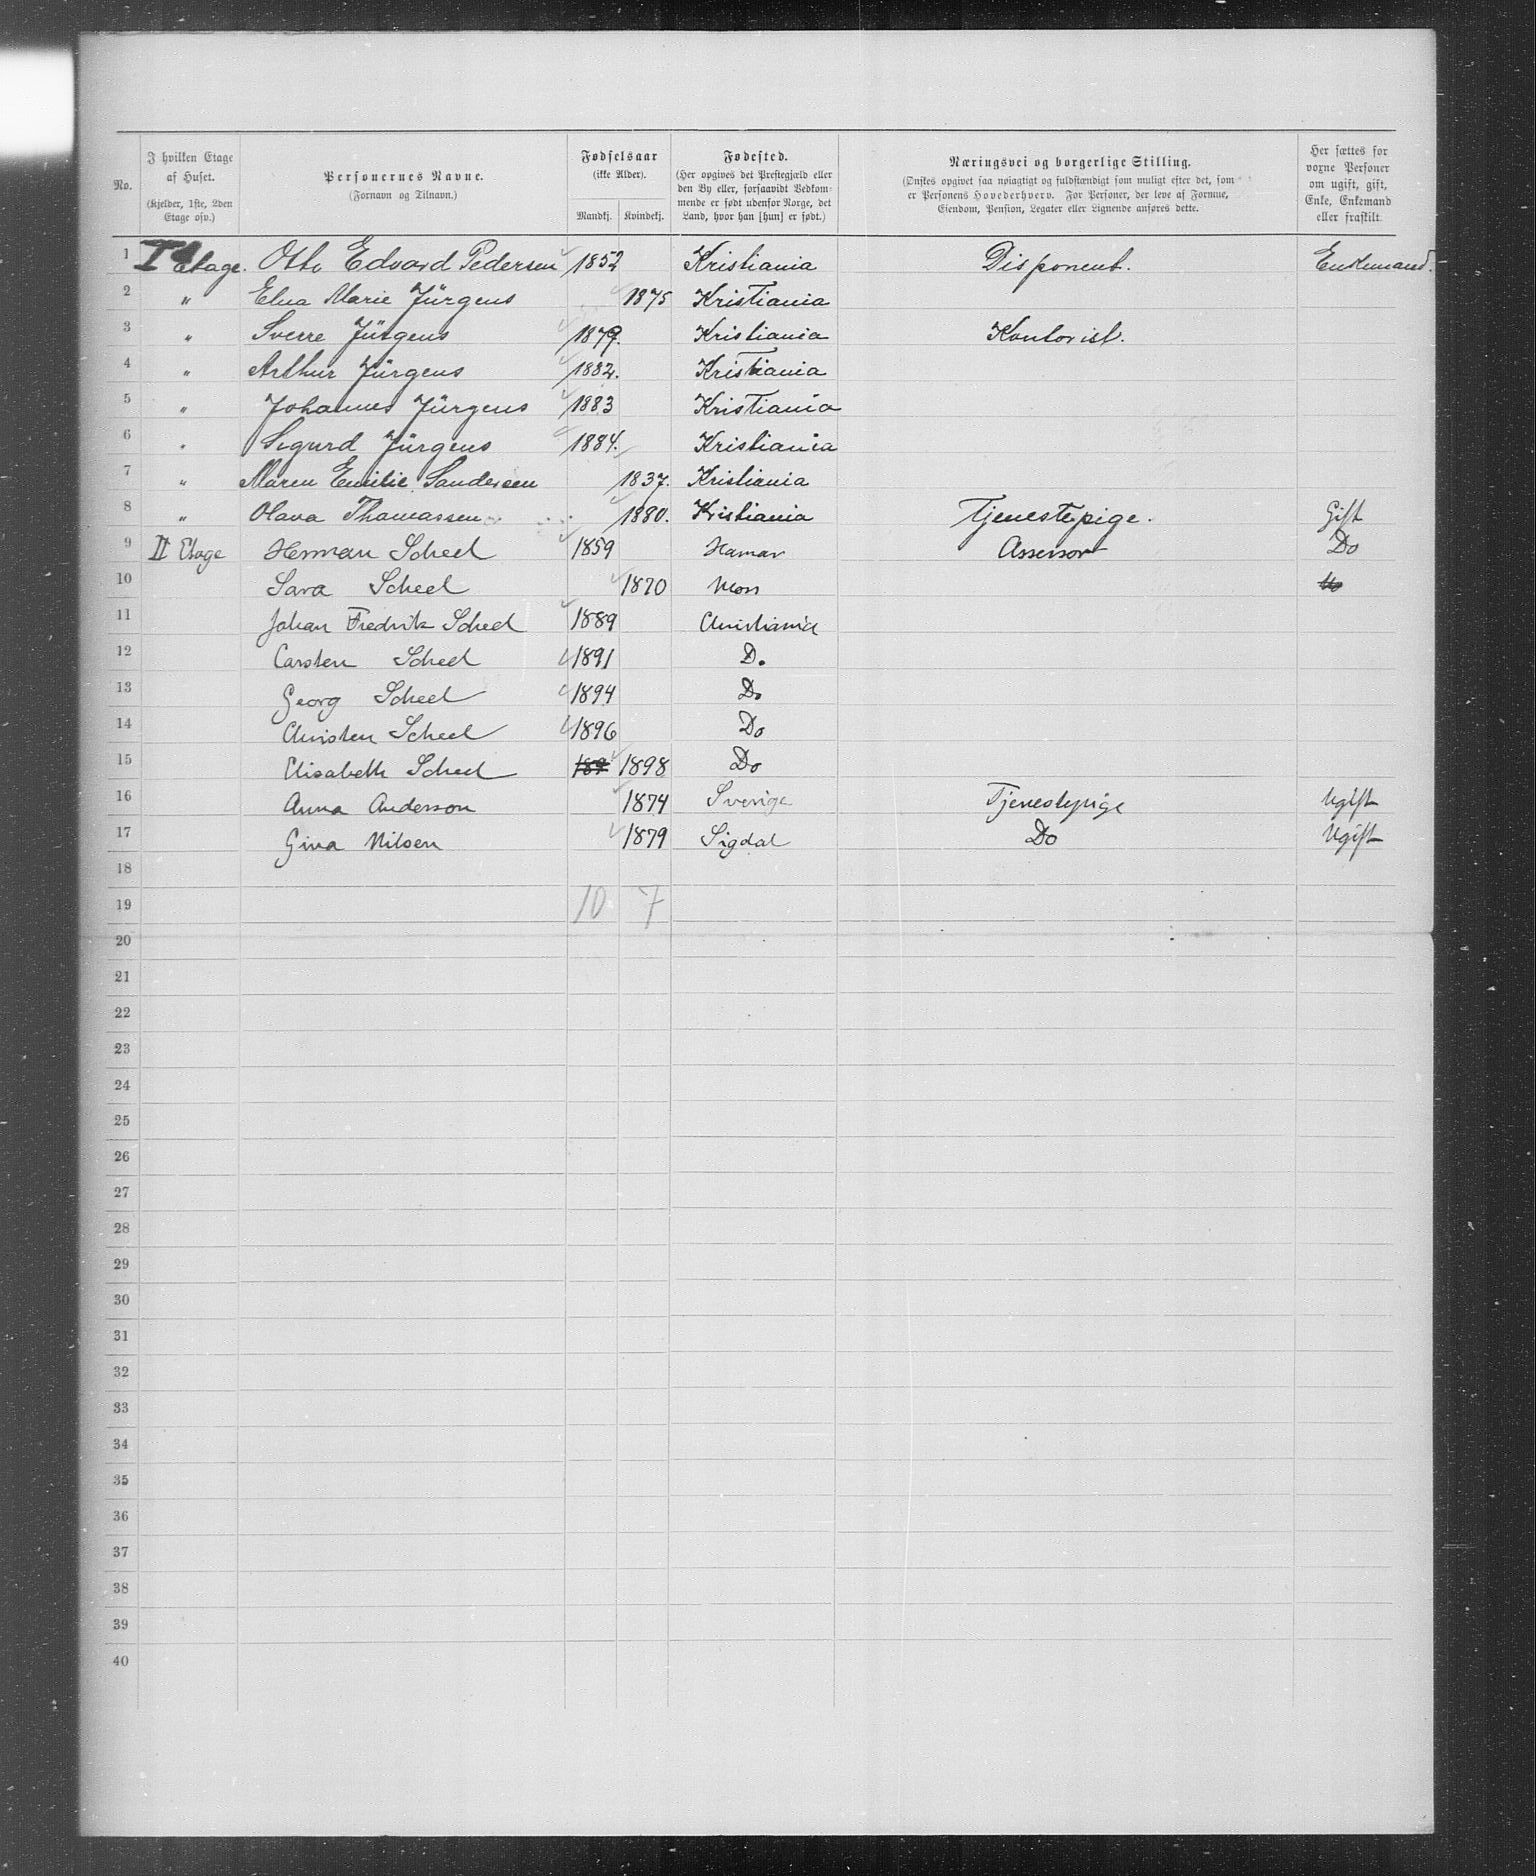 No.
I hvilken Etage af Huset. (Kjelder, 1ste, 2den Etage osv.)
Personernes Navne. (Fornavn og Tilnavn.)
Fødselsaar (ikke Alder). Mandkj. Kvindekj.
Fødested. (Her opgives det Prestegjæld eller den By eller, forsaavidt Vedkommende er født udenfor Norge, det Land, hvor han [hun] er født.)
Næringsvei og borgerlige Stilling. (Ønskes opgivet saa nøiagtigt og fuldstændigt som muligt efter det, som er Personens Hovederhverv. For Personer, der leve af Formue, Eiendom, Pension, Legater eller Lignende anføres dette.)
Her sættes for voxne Personer om ugift, gift, Enke, Enkemand eller fraskilt.
1 I Etage. Otto Edvard Pedersen 1852 Kristiania Disponent. Enkemand.
2 " Elna Marie Jürgens 1875 Kristiania
3 " Sverre Jürgens 1879. Kristiania Kontorist.
4 " Arthur Jürgens 1882. Kristiania
5 " Johannes Jürgens 1883 Kristiania
6 " Sigurd Jürgens 1884. Kristiania
7 " Maren Emilie Sandersen 1837. Kristiania
8 " Olava Thomassen 1880. Kristiania Tjenestepige. Gift
9 II Etage Herman Scheel 1859 Hamar Assessor Do
10 Sara Scheel 1870 Moss Do
11 Johan Fredrik Scheel 1889 Christiania
12 Carsten Scheel 1891 Do
13 Georg Scheel 1894 Do
14 Christen Scheel 1896 Do
15 Elisabeth Scheel 189 1898 Do
16 Anna Anderson 1874 Sverige Tjenestepige Ugift
17 Gina Nilsen 1879 Sigdal Do Ugift
18
19 10 7
20
21
22
23
24
25
26
27
28
29
30
31
32
33
34
35
36
37
38
39
40